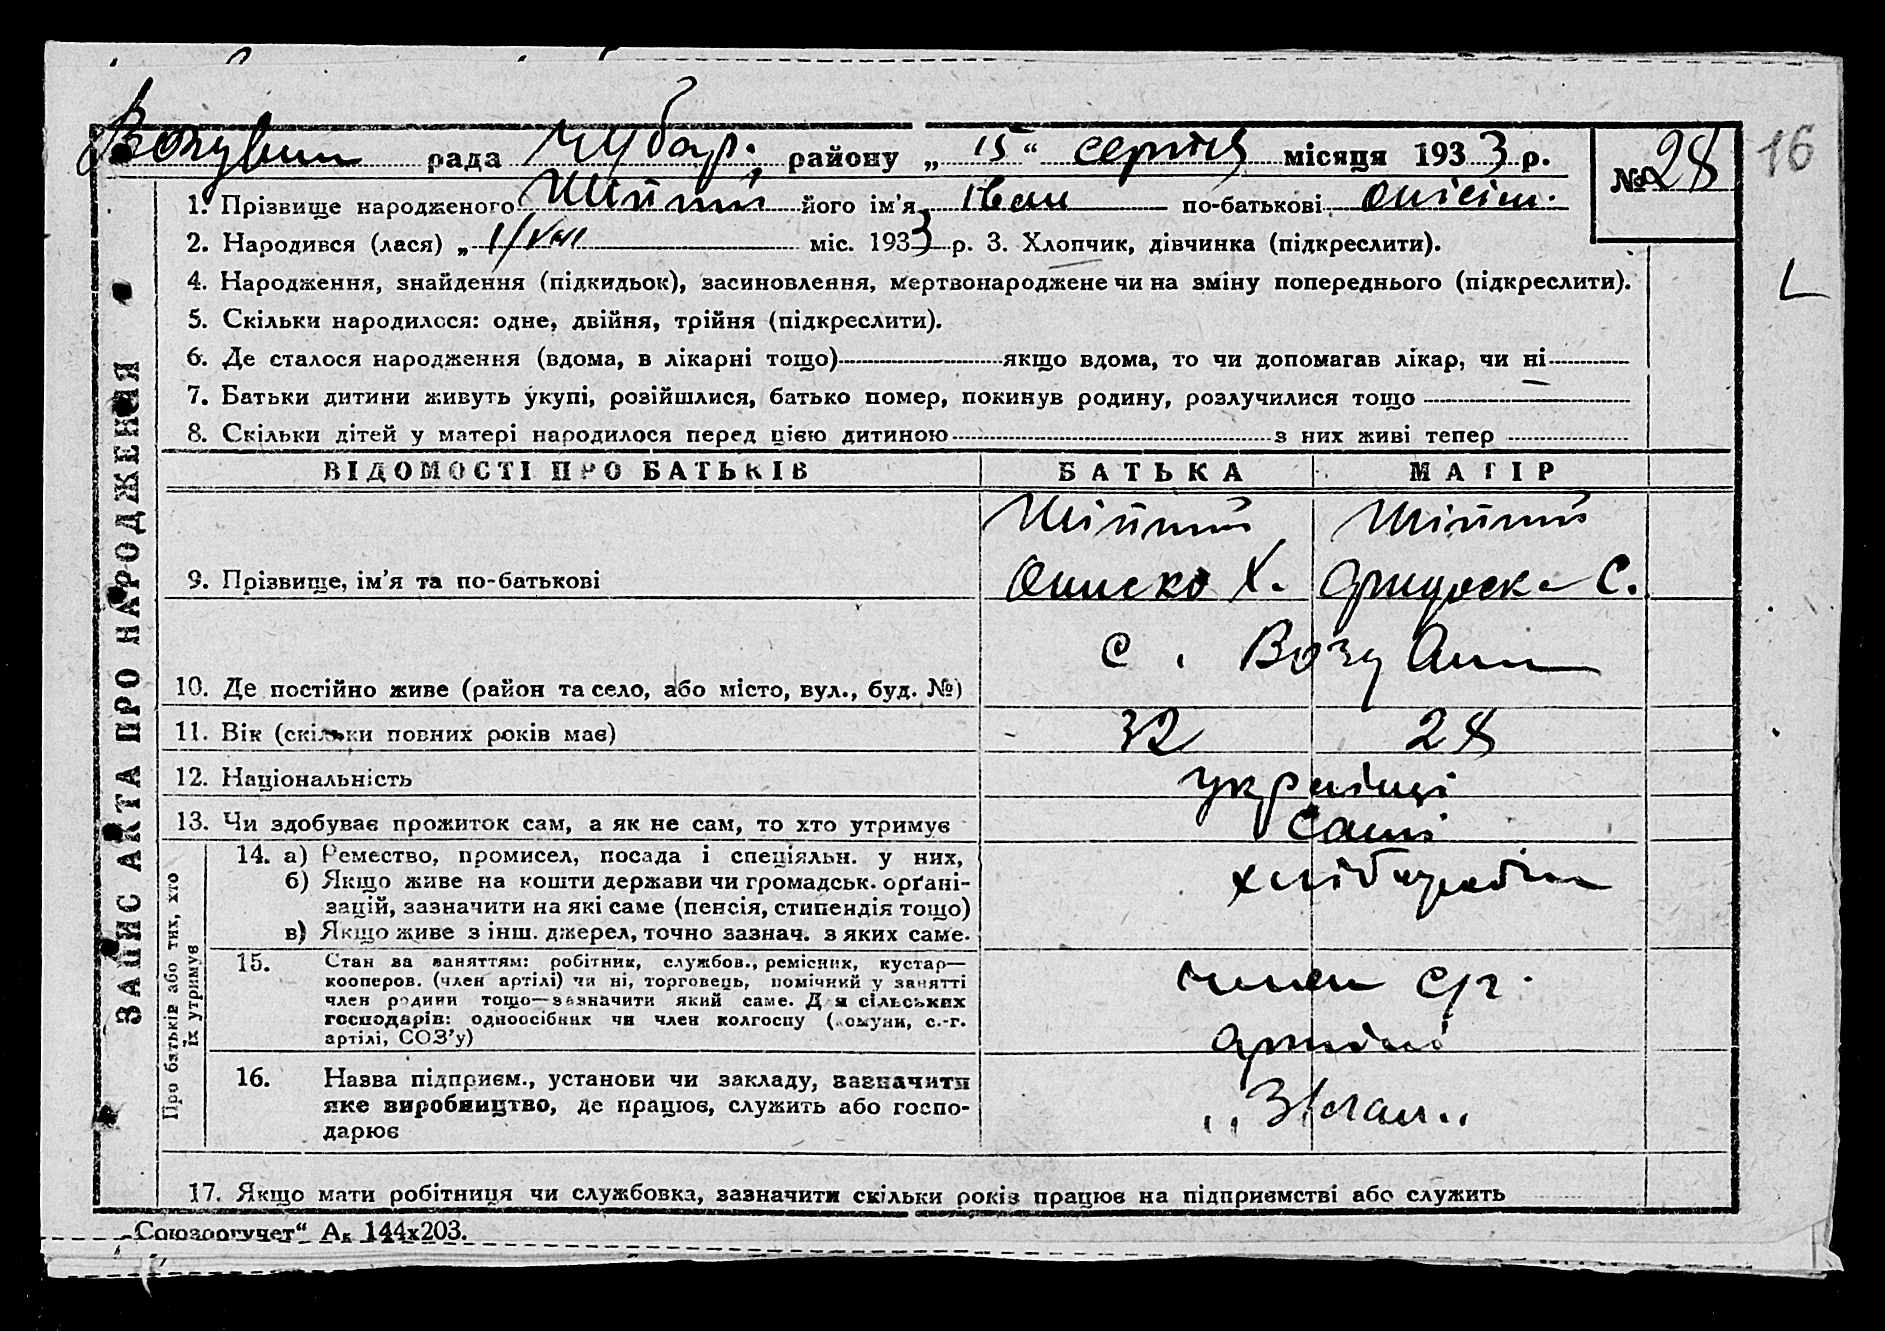 рада Чубар. району „ 15 “ серпня місяця 1933 р.
№ 28
16
1. Прізвище народженого Шийпий його ім’я Іван по-батькові Онісім.
2. Народився (лася) „ 1/VIII міс. 1933 р. 3. Хлопчик, дівчинка (підкреслити).
4. Народження, знайдення (підкидьок), засиновлення, мертвонароджене чи на зміну попереднього (підкреслити).
5. Скільки народилося: одне, двійня, трійня (підкреслити).
6. Де сталося народження (вдома, в лікарні тощо) якщо вдома, то чи допомагав лікар, чи ні
7. Батьки дитини живуть укупі, розійшлися, батько помер, покинув родину, розлучилися тощо
8. Скільки дітей у матері народилося перед цією дитиною з них живі тепер
ЗАПИС АКТА ПРО НАРОДЖЕННЯ
ВІДОМОСТІ ПРО БАТЬКІВ БАТЬКА МАТІР
9. Прізвище, ім’я та по-батькові Х. С.
с.
10. Де постійно живе (район та село, або місто, вул., буд. №)
11. Вік (скільки повних років має) 32 28
12. Національність українці
13. Чи здобуває прожиток сам, а як не сам, то хто утримує самі
Про батьків або тих, хто
їх утримує
14. а) Ремество, промисел, посада і спеціяльн. у них,
б) Якщо живе на кошти держави чи громадськ. орґані-
зацій, зазначити на які саме (пенсія, стипендія тощо)
в) Якщо живе з інш. джерел, точно зазнач. з яких саме.
хлібороби
15. Стан за заняттям: робітник, службов., ремісник, кустар—
кооперов. (член артілі) чи ні, торговець, помічний у занятті
член родини тощо—зазначити який саме. Для сільських
господарів: одноосібник чи член колгоспу (комуни, с.-г.
артілі, СОЗ’у)
член с/г.
артілі
16. Назва підприєм., установи чи закладу, зазначити
яке виробництво, де працює, служить або госпо-
дарює
17. Якщо мати робітниця чи службовка, зазначити скільки років працює на підприємстві або служить
„Союзоргучет“ А₅ 144х203.